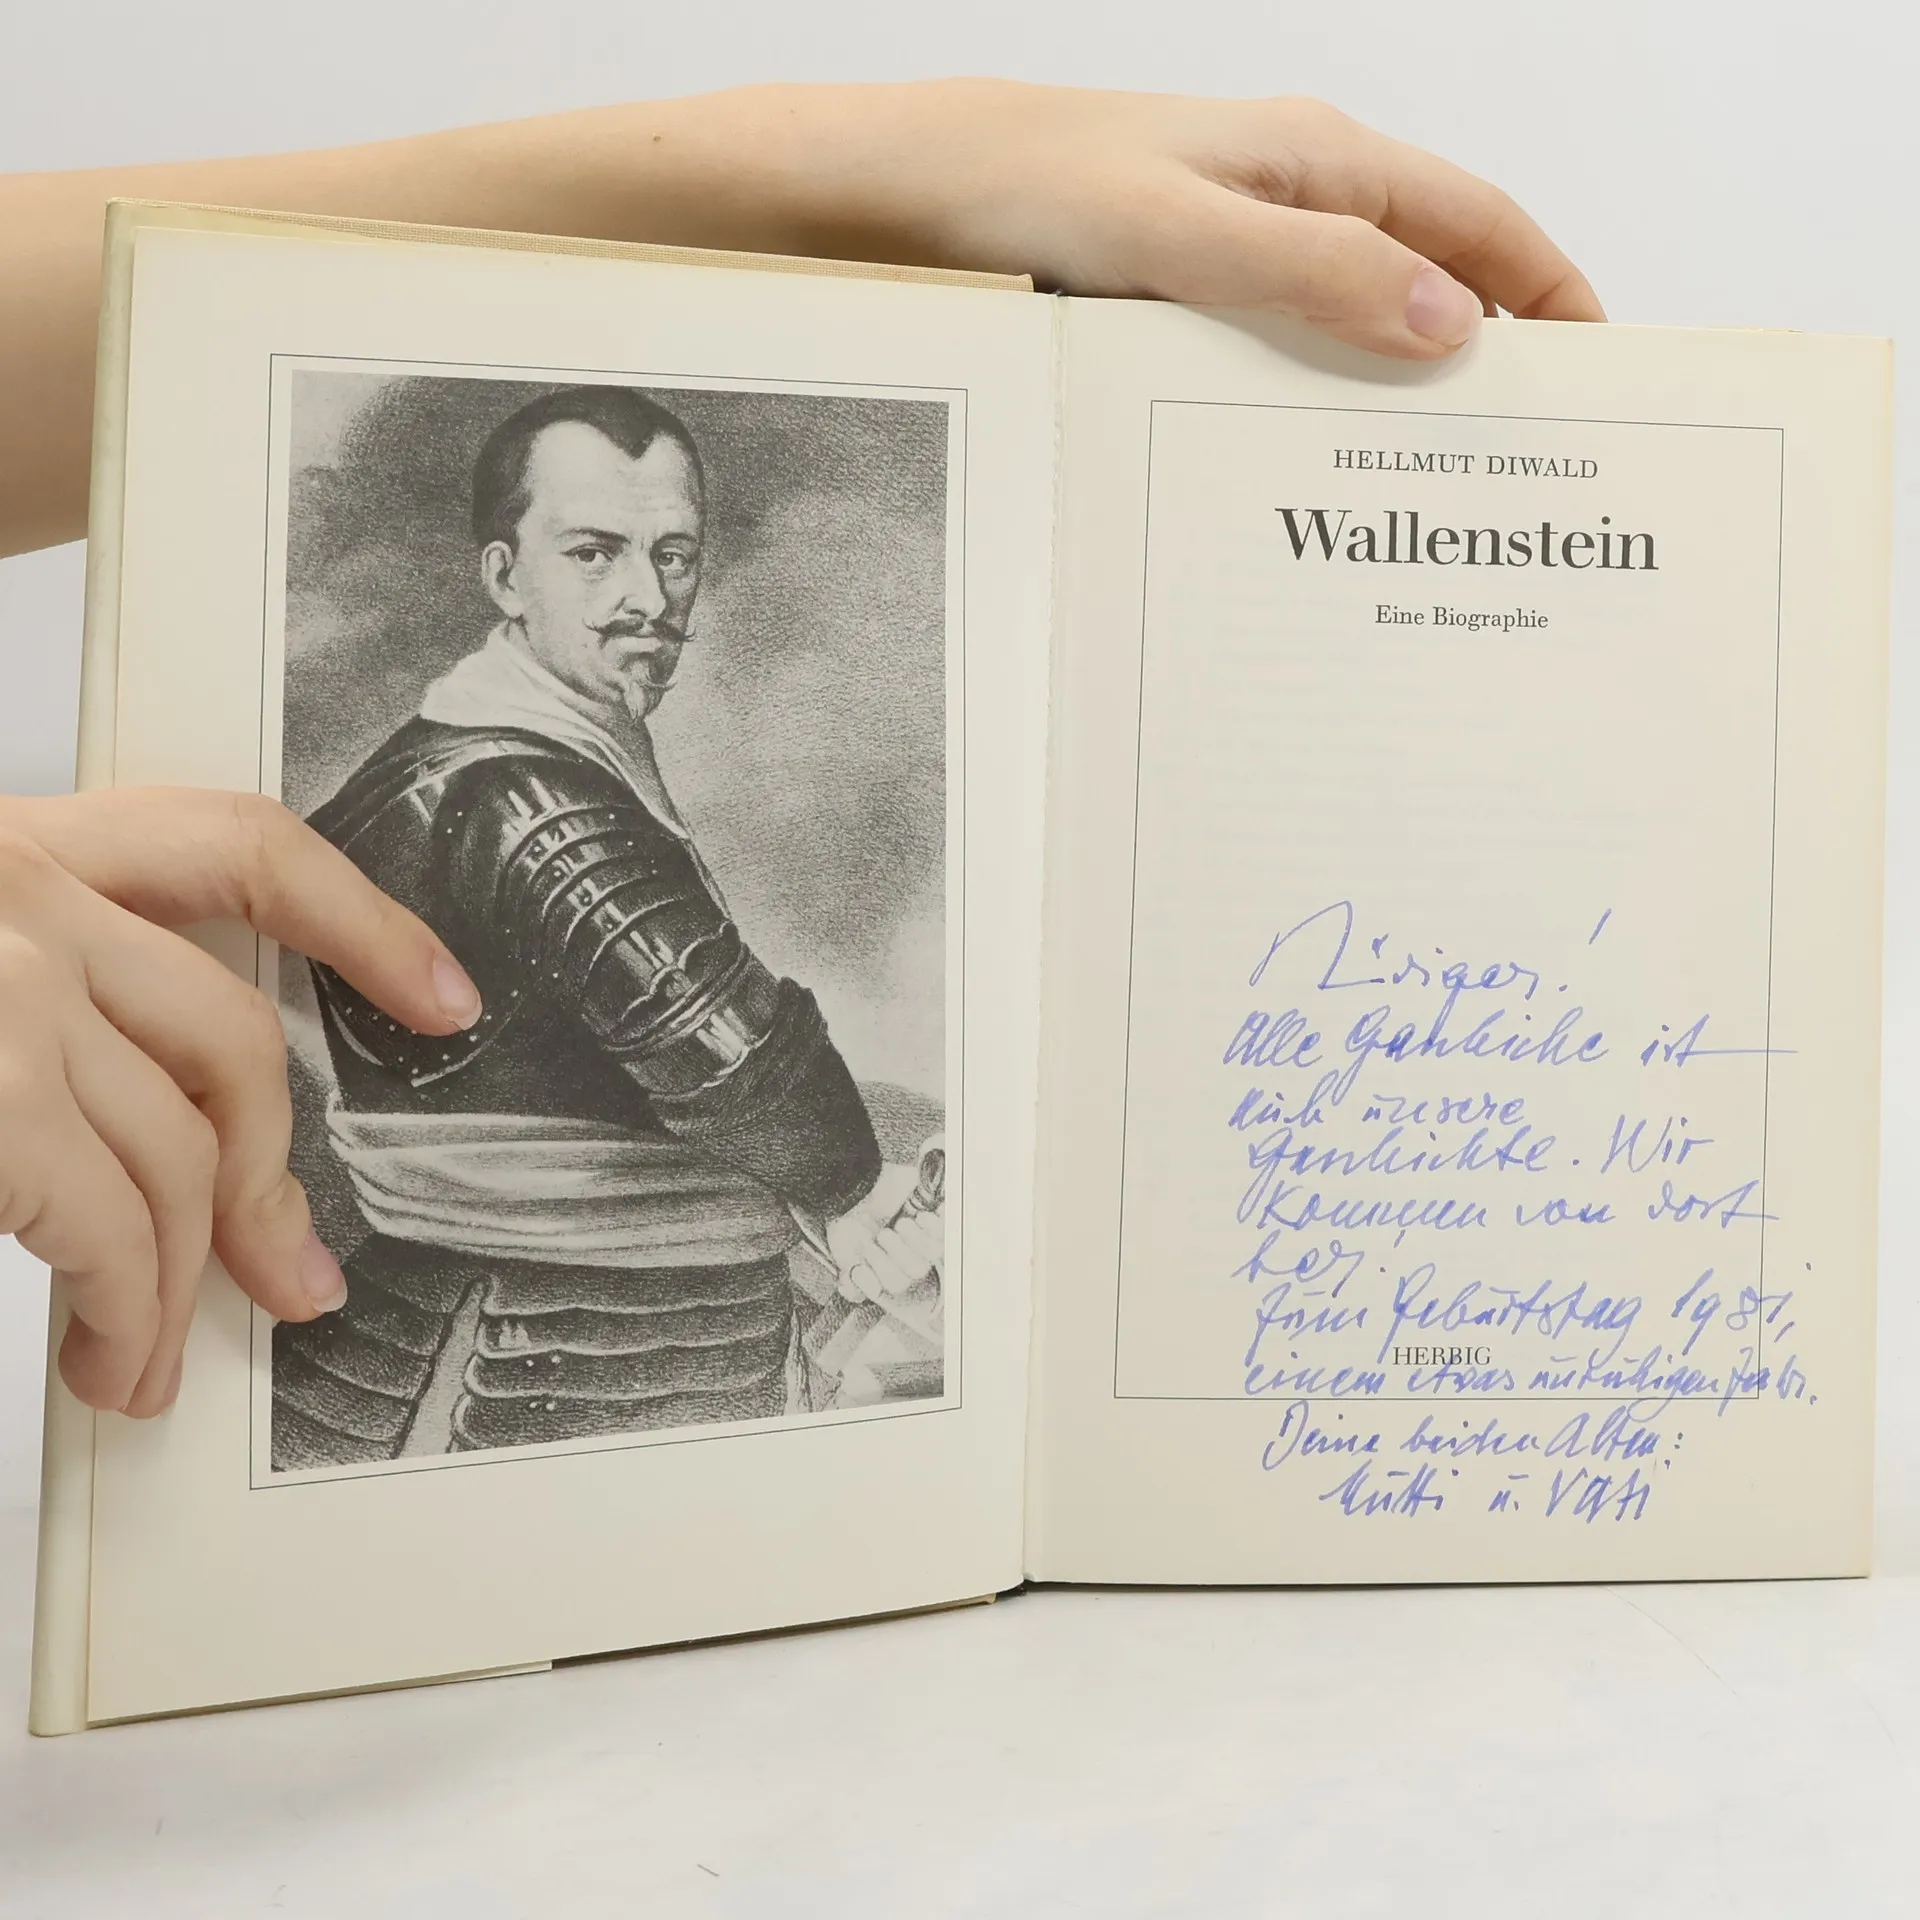 HELLMUT DIWALD
Wallenstein
Eine Biographie
Rüdiger!
Alle Geschichte ist
auch unsere
Geschichte. Wir
kommen von dort
her!
Zum Geburtstag 1981,
einem etwas unruhigen Jahr.
HERBIG
Deine beiden Alten:
Mutti u. Vati